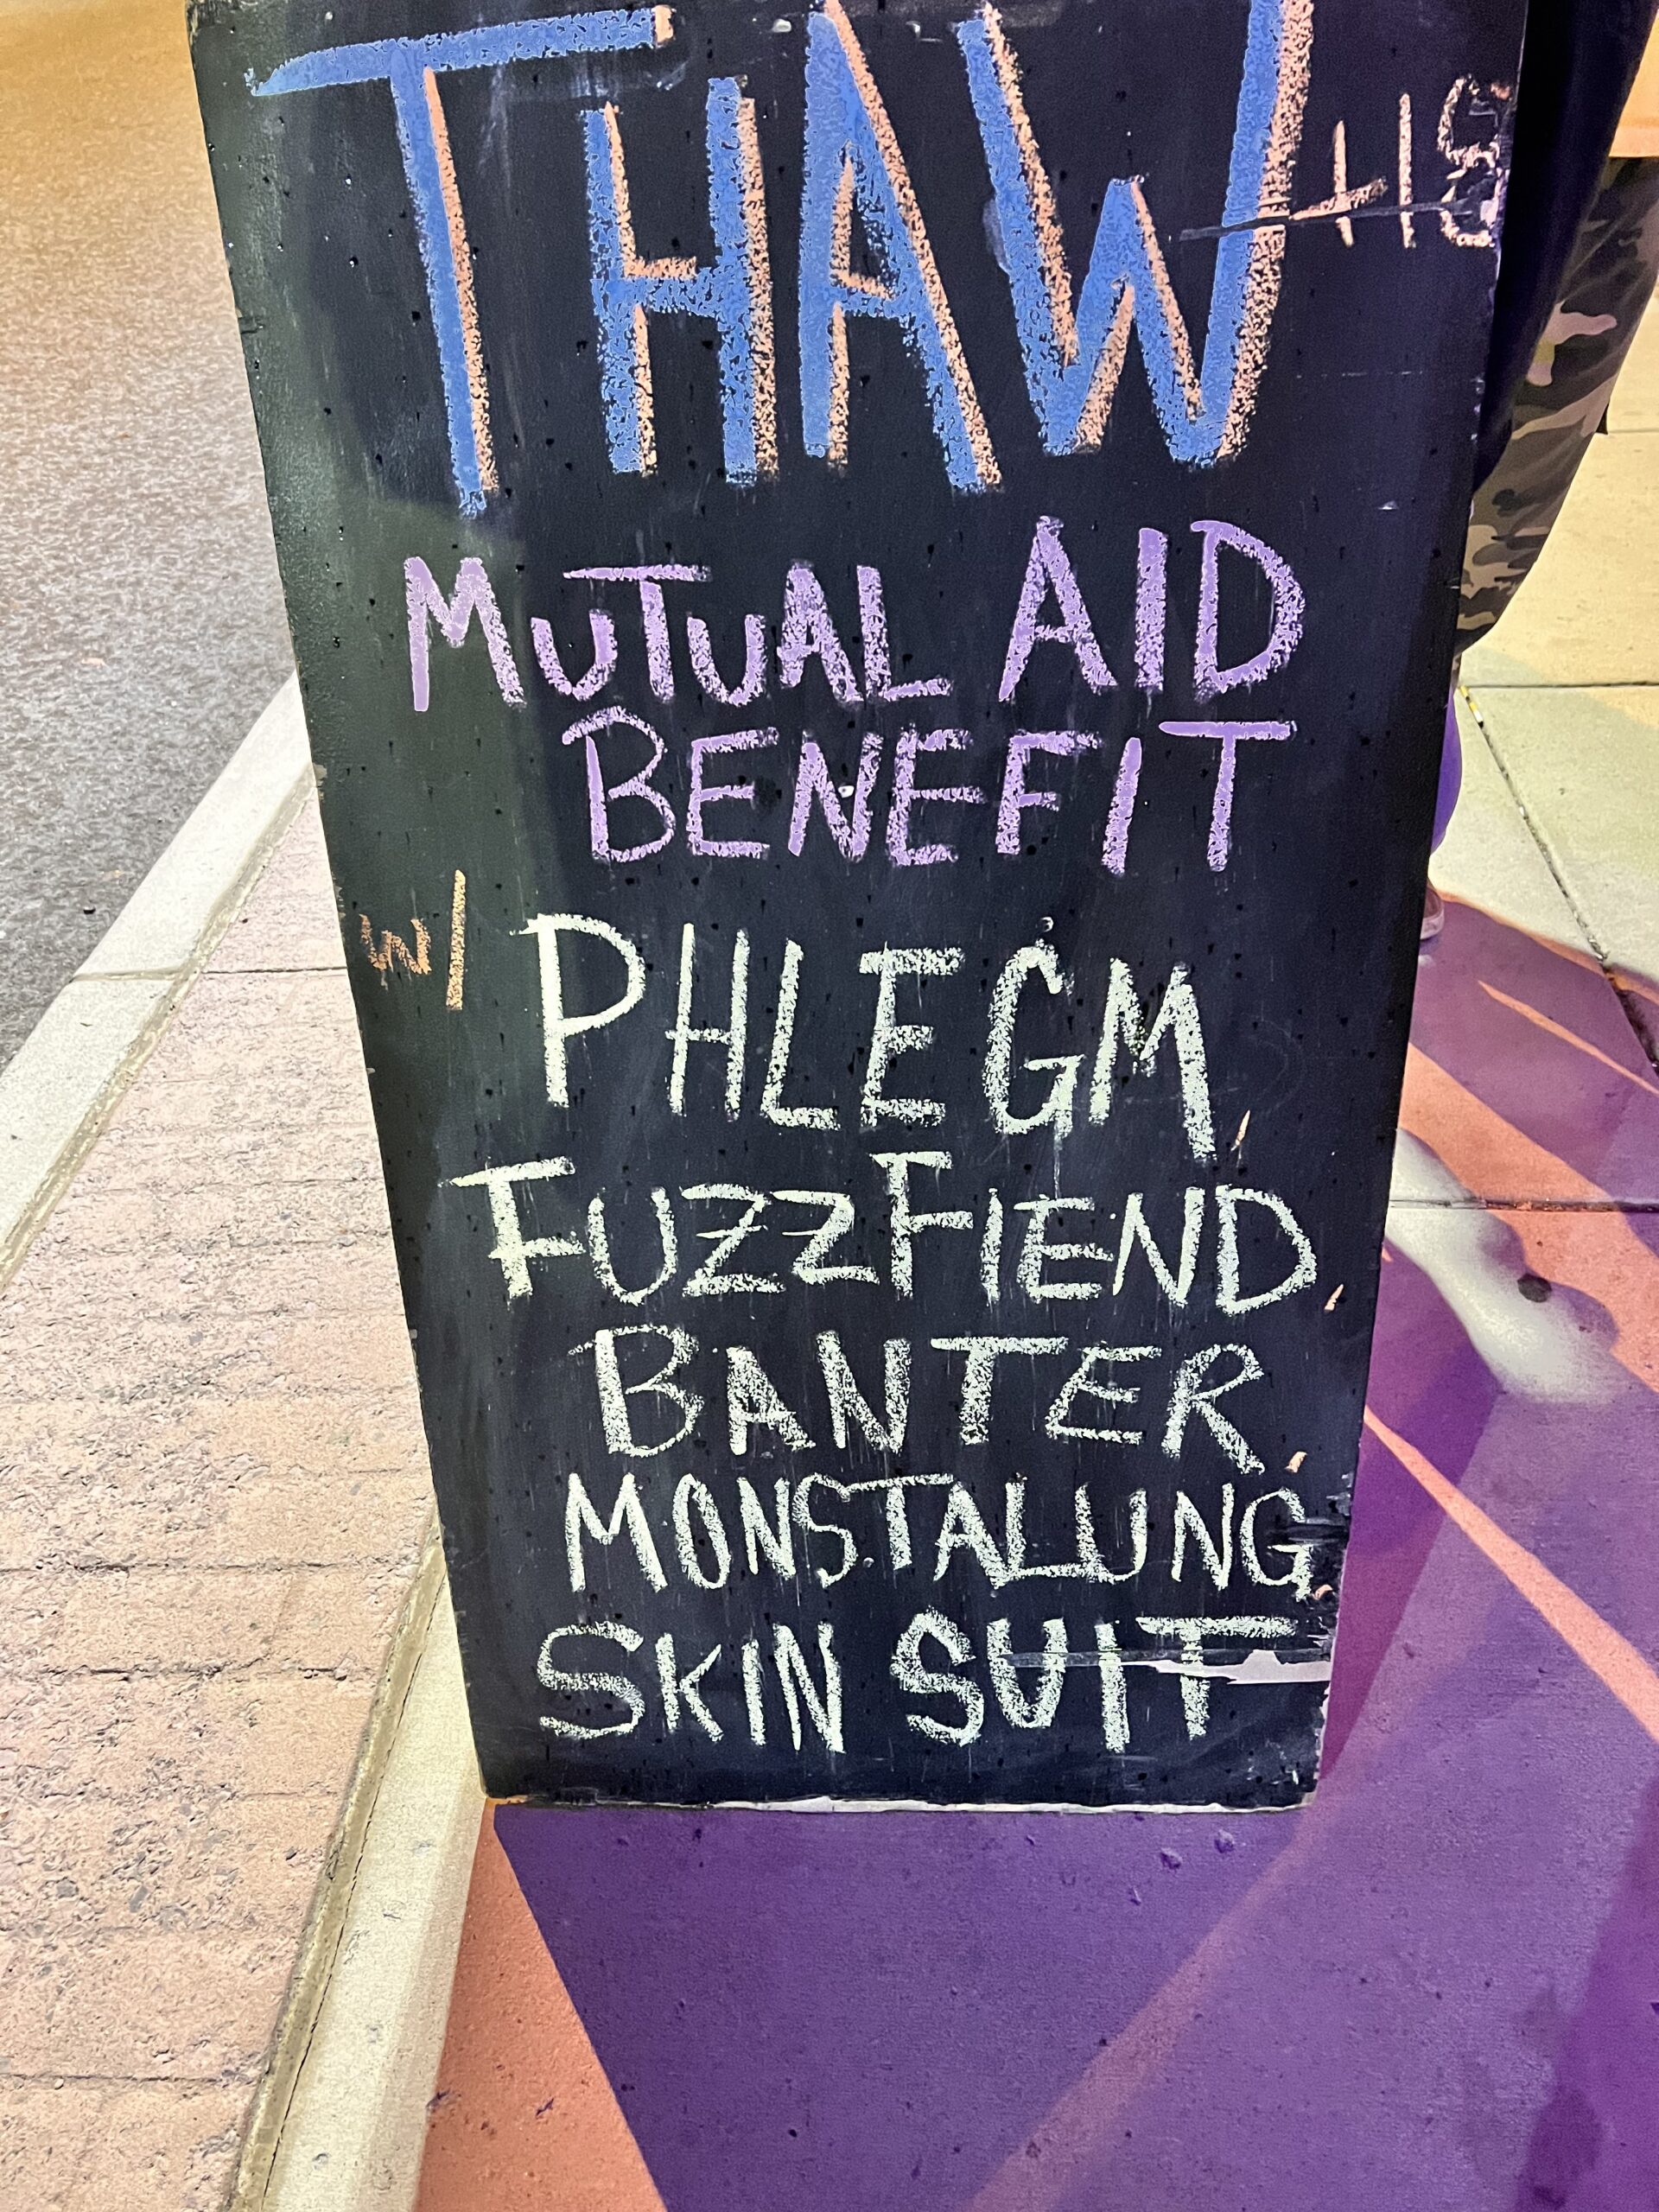 THAW +18
MUTUAL AID
BENEFIT
W/ PHLEGM,
FUZZFIEND,
BANTER,
MONSTALUNG,
SKIN SUIT